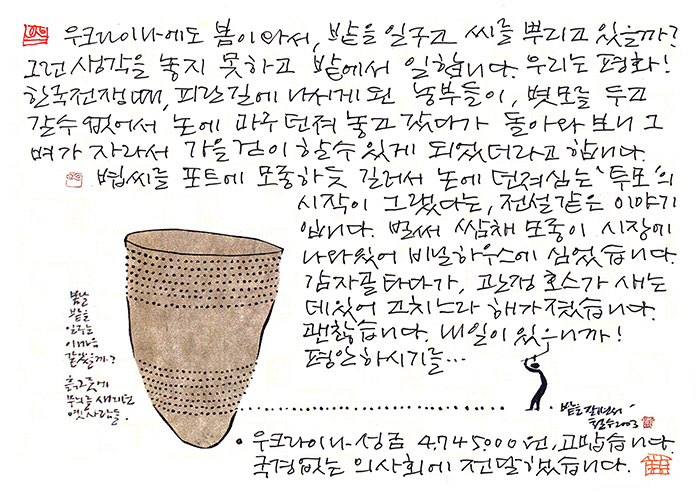 우크라이나에도 봄이 와서, 밭을 일구고 씨를 뿌리고 있을까?
그런 생각을 놓지 못하고 밭에서 일합니다. 우리는 평화!
한국전쟁때, 피란길에 나서게 된 농부들이, 볏모를 두고
갈수 없어서 논에 마구 던져 놓고 갔다가 돌아와 보니 그
벼가 자라서 가을걷이 할수 있게 되었더라고 합니다.
볍씨를 포트에 모종하듯 길러서 논에 던져심는 '투모'의
시작이 그랬다는, 전설같은 이야기
입니다. 벌써 쌈채 모종이 시장에
나와있어 비닐하우스에 심었습니다.
감자골 타다가, 관정 호스가 새는
데 있어 고치느라 해가 졌습니다.
괜찮습니다. 내일이 있으니까!
평안하시기를...
봄날
밭을
일구는
이 마음
같았을까?
흙그릇에
무늬를 새기던
옛사람들.
밭을
철수2003
• 우크라이나-성금 4,745,000원, 고맙습니다.
국경없는 의사회에 전달했습니다.